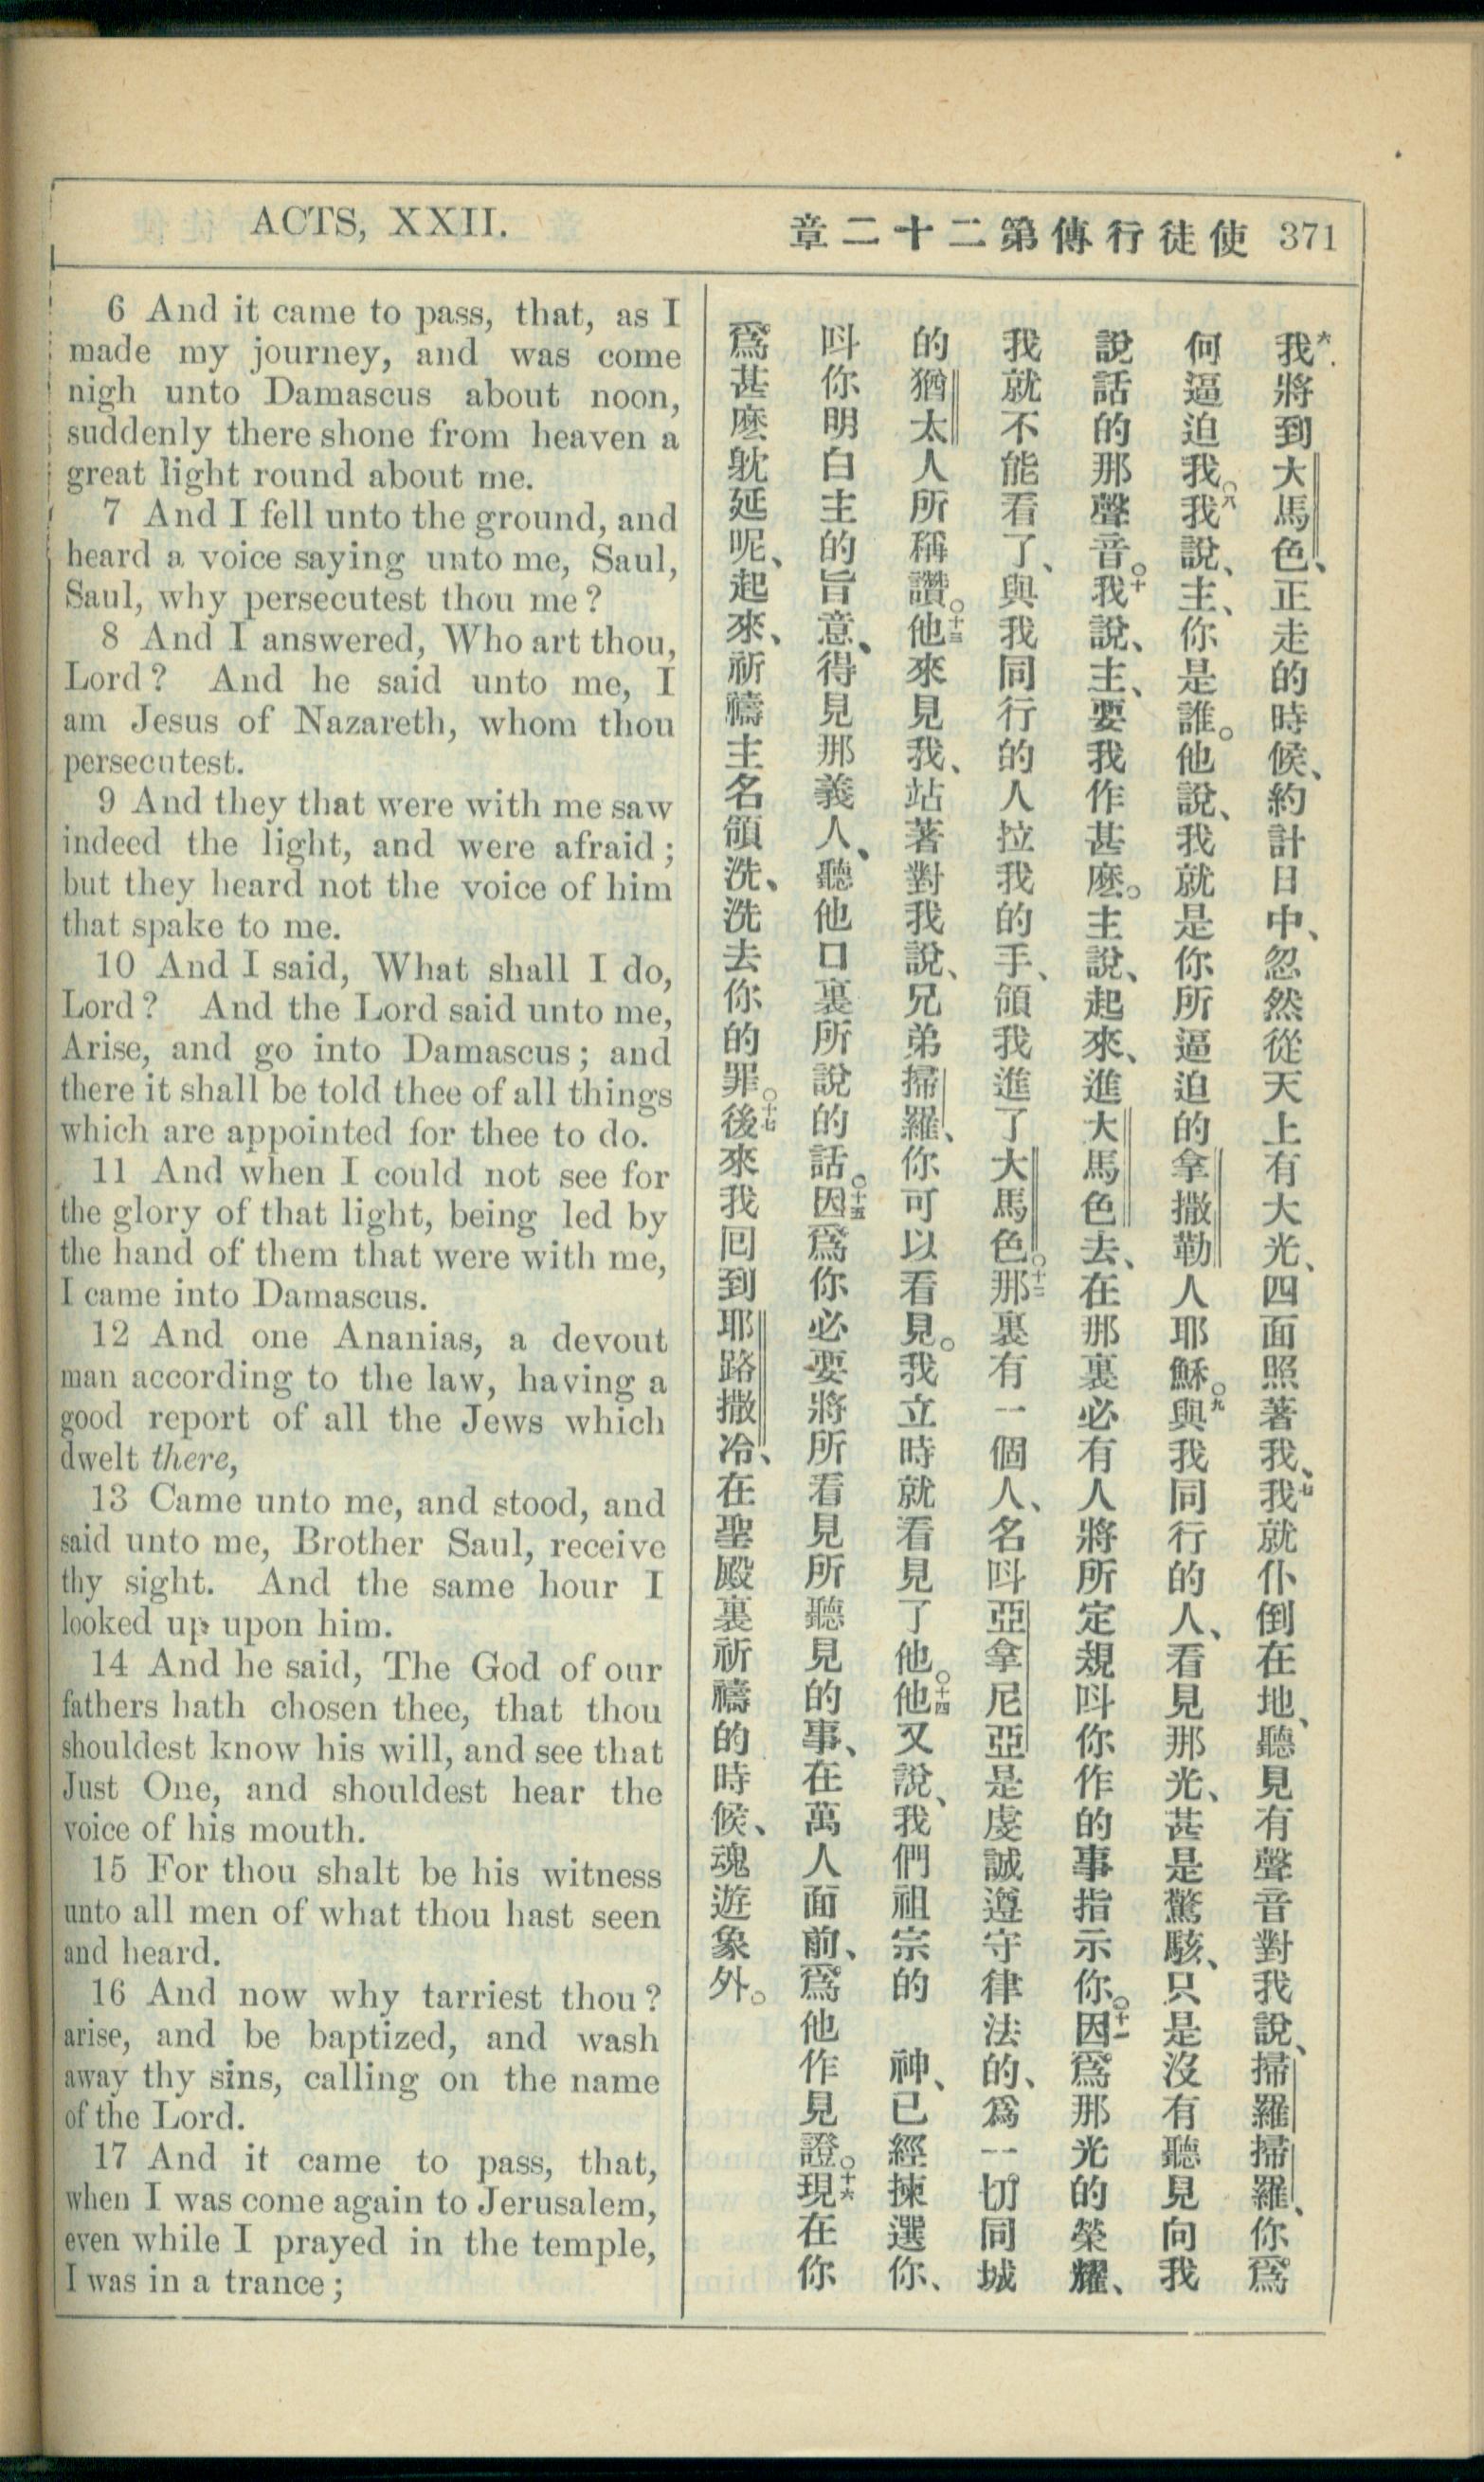 ACTS, XXII.
使徒行傳第二十二章 371
6 And it came to pass, that, as I
made my journey, and was come
nigh unto Damascus about noon,
suddenly there shone from heaven a
great light round about me.
7 And I fell unto the ground, and
heard a voice saying unto me, Saul,
Saul, why persecutest thou me?
8 And I answered, Who art thou,
Lord? And he said unto me, I
am Jesus of Nazareth, whom thou
persecutest.
9 And they that were with me saw
indeed the light, and were afraid;
but they heard not the voice of him
that spake to me.
10 And I said, What shall I do,
Lord? And the Lord said unto me,
Arise, and go into Damascus; and
there it shall be told thee of all things
which are appointed for thee to do.
11 And when I could not see for
the glory of that light, being led by
the hand of them that were with me,
I came into Damascus.
12 And one Ananias, a devout
man according to the law, having a
good report of all the Jews which
dwelt there,
13 Came unto me, and stood, and
said unto me, Brother Saul, receive
thy sight. And the same hour I
looked up upon him.
14 And he said, The God of our
fathers hath chosen thee, that thou
shouldest know his will, and see that
Just One, and shouldest hear the
voice of his mouth.
15 For thou shalt be his witness
unto all men of what thou hast seen
and heard.
16 And now why tarriest thou?
arise, and be baptized, and wash
away thy sins, calling on the name
of the Lord.
17 And it came to pass, that,
when I was come again to Jerusalem,
even while I prayed in the temple,
I was in a trance;
六我將到大馬色、正走的時候、約計日中、忽然從天上有大光、四面照著我、七我就仆倒在地、聽見有聲音對我說、掃羅掃羅、你爲
何逼迫我。八我說、主、你是誰。他說、我就是你所逼迫的拿撒勒人耶穌。九與我同行的人、看見那光、甚是驚駭、只是沒有聽見向我
說話的那聲音。十我說、主、要我作甚麽。主說、起來、進大馬色去、在那裏必有人將所定規呌你作的事指示你。十一因爲那光的榮耀、
我就不能看了、與我同行的人拉我的手、領我進了大馬色。十二那裏有一個人、名呌亞拿尼亞是虔誠遵守律法的、爲一切同城
的猶太人所稱讚。十三他來見我、站著對我說、兄弟掃羅、你可以看見。我立時就看見了他。十四他又說、我們祖宗的 神、已經揀選你、
呌你明白主的旨意、得見那義人、聽他口裏所說的話。十五因爲你必要將所看見所聽見的事、在萬人面前、爲他作見證。十六現在你
爲甚麽躭延呢、起來、祈禱主名領洗、洗去你的罪。十七後來我回到耶路撒冷、在聖殿裏祈禱的時候、魂遊象外。